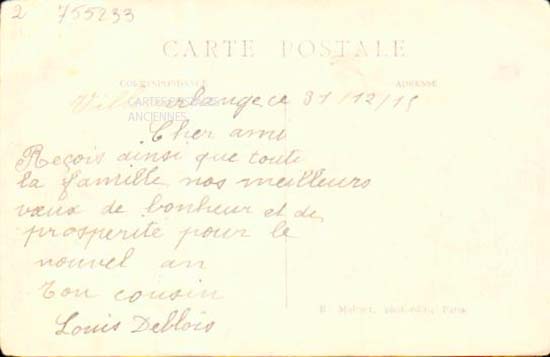 2 755233
CARTE POSTALE
CORRESPONDANCE ADRESSE
CARTES POSTALES
ANCIENNES
ce 31/12/15
Cher ami
Reçois ainsi que toute
la famille nos meilleurs
vœux de bonheur et de
prosperité pour le
nouvel an
Ton cousin
Louis Deblois
phot-édit., Paris